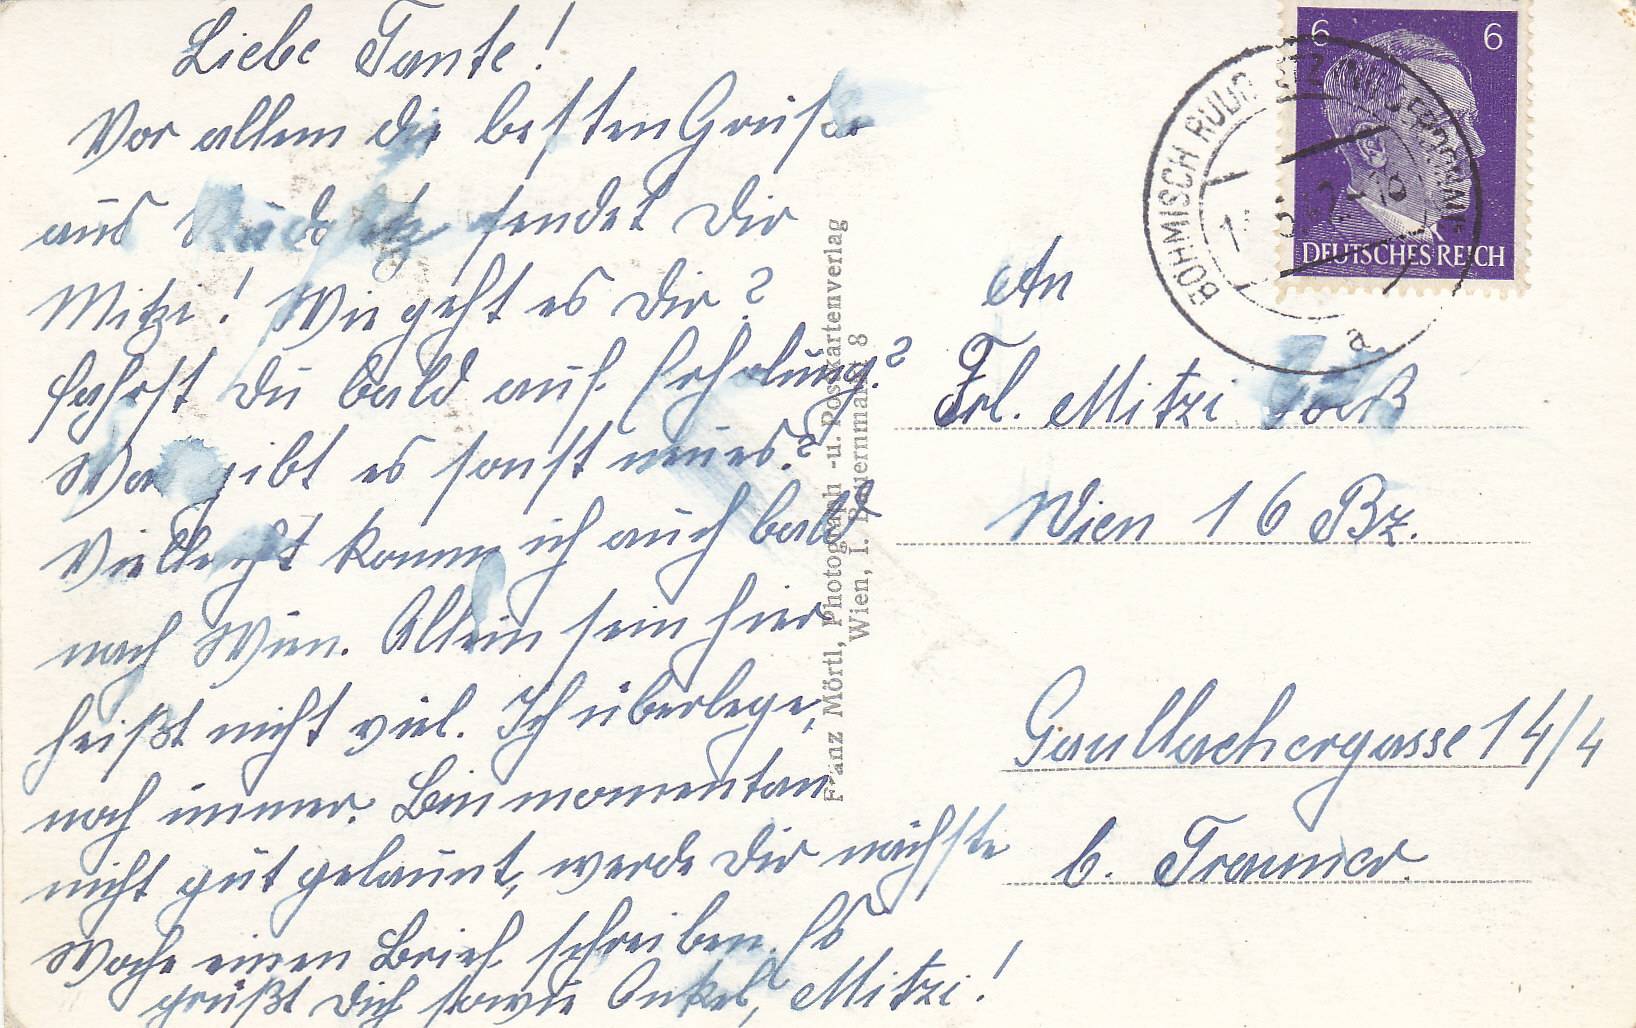 Liebe Tante!
Vor allem die besten Grüße
aus Rudoletz sendet Dir
Mitzi! Wie geht es Dir?
fahrst Du bald auf Erholung?
Was gibt es sonst neues?
Vielleicht komm ich auch bald
nach Wien. Allein sein hier
heißt nicht viel. Ich überlege,
noch immer. Bin momentan
nicht gut gelaunt, werde Dir nächste
Woche einen Brief schreiben. Es
grüßt Dich sowie Onkel, Mitzi!
Franz Mörtl, Photograph- u. Postkartenverlag
Wien, I. Bauernmarkt 8
6 6
DEUTSCHES REICH
BÖHMISCH RUDOLETZ
a
An
Frl. Mitzi
Wien 16 Bz.
Gaullachergasse 14/4
b. Trauner.